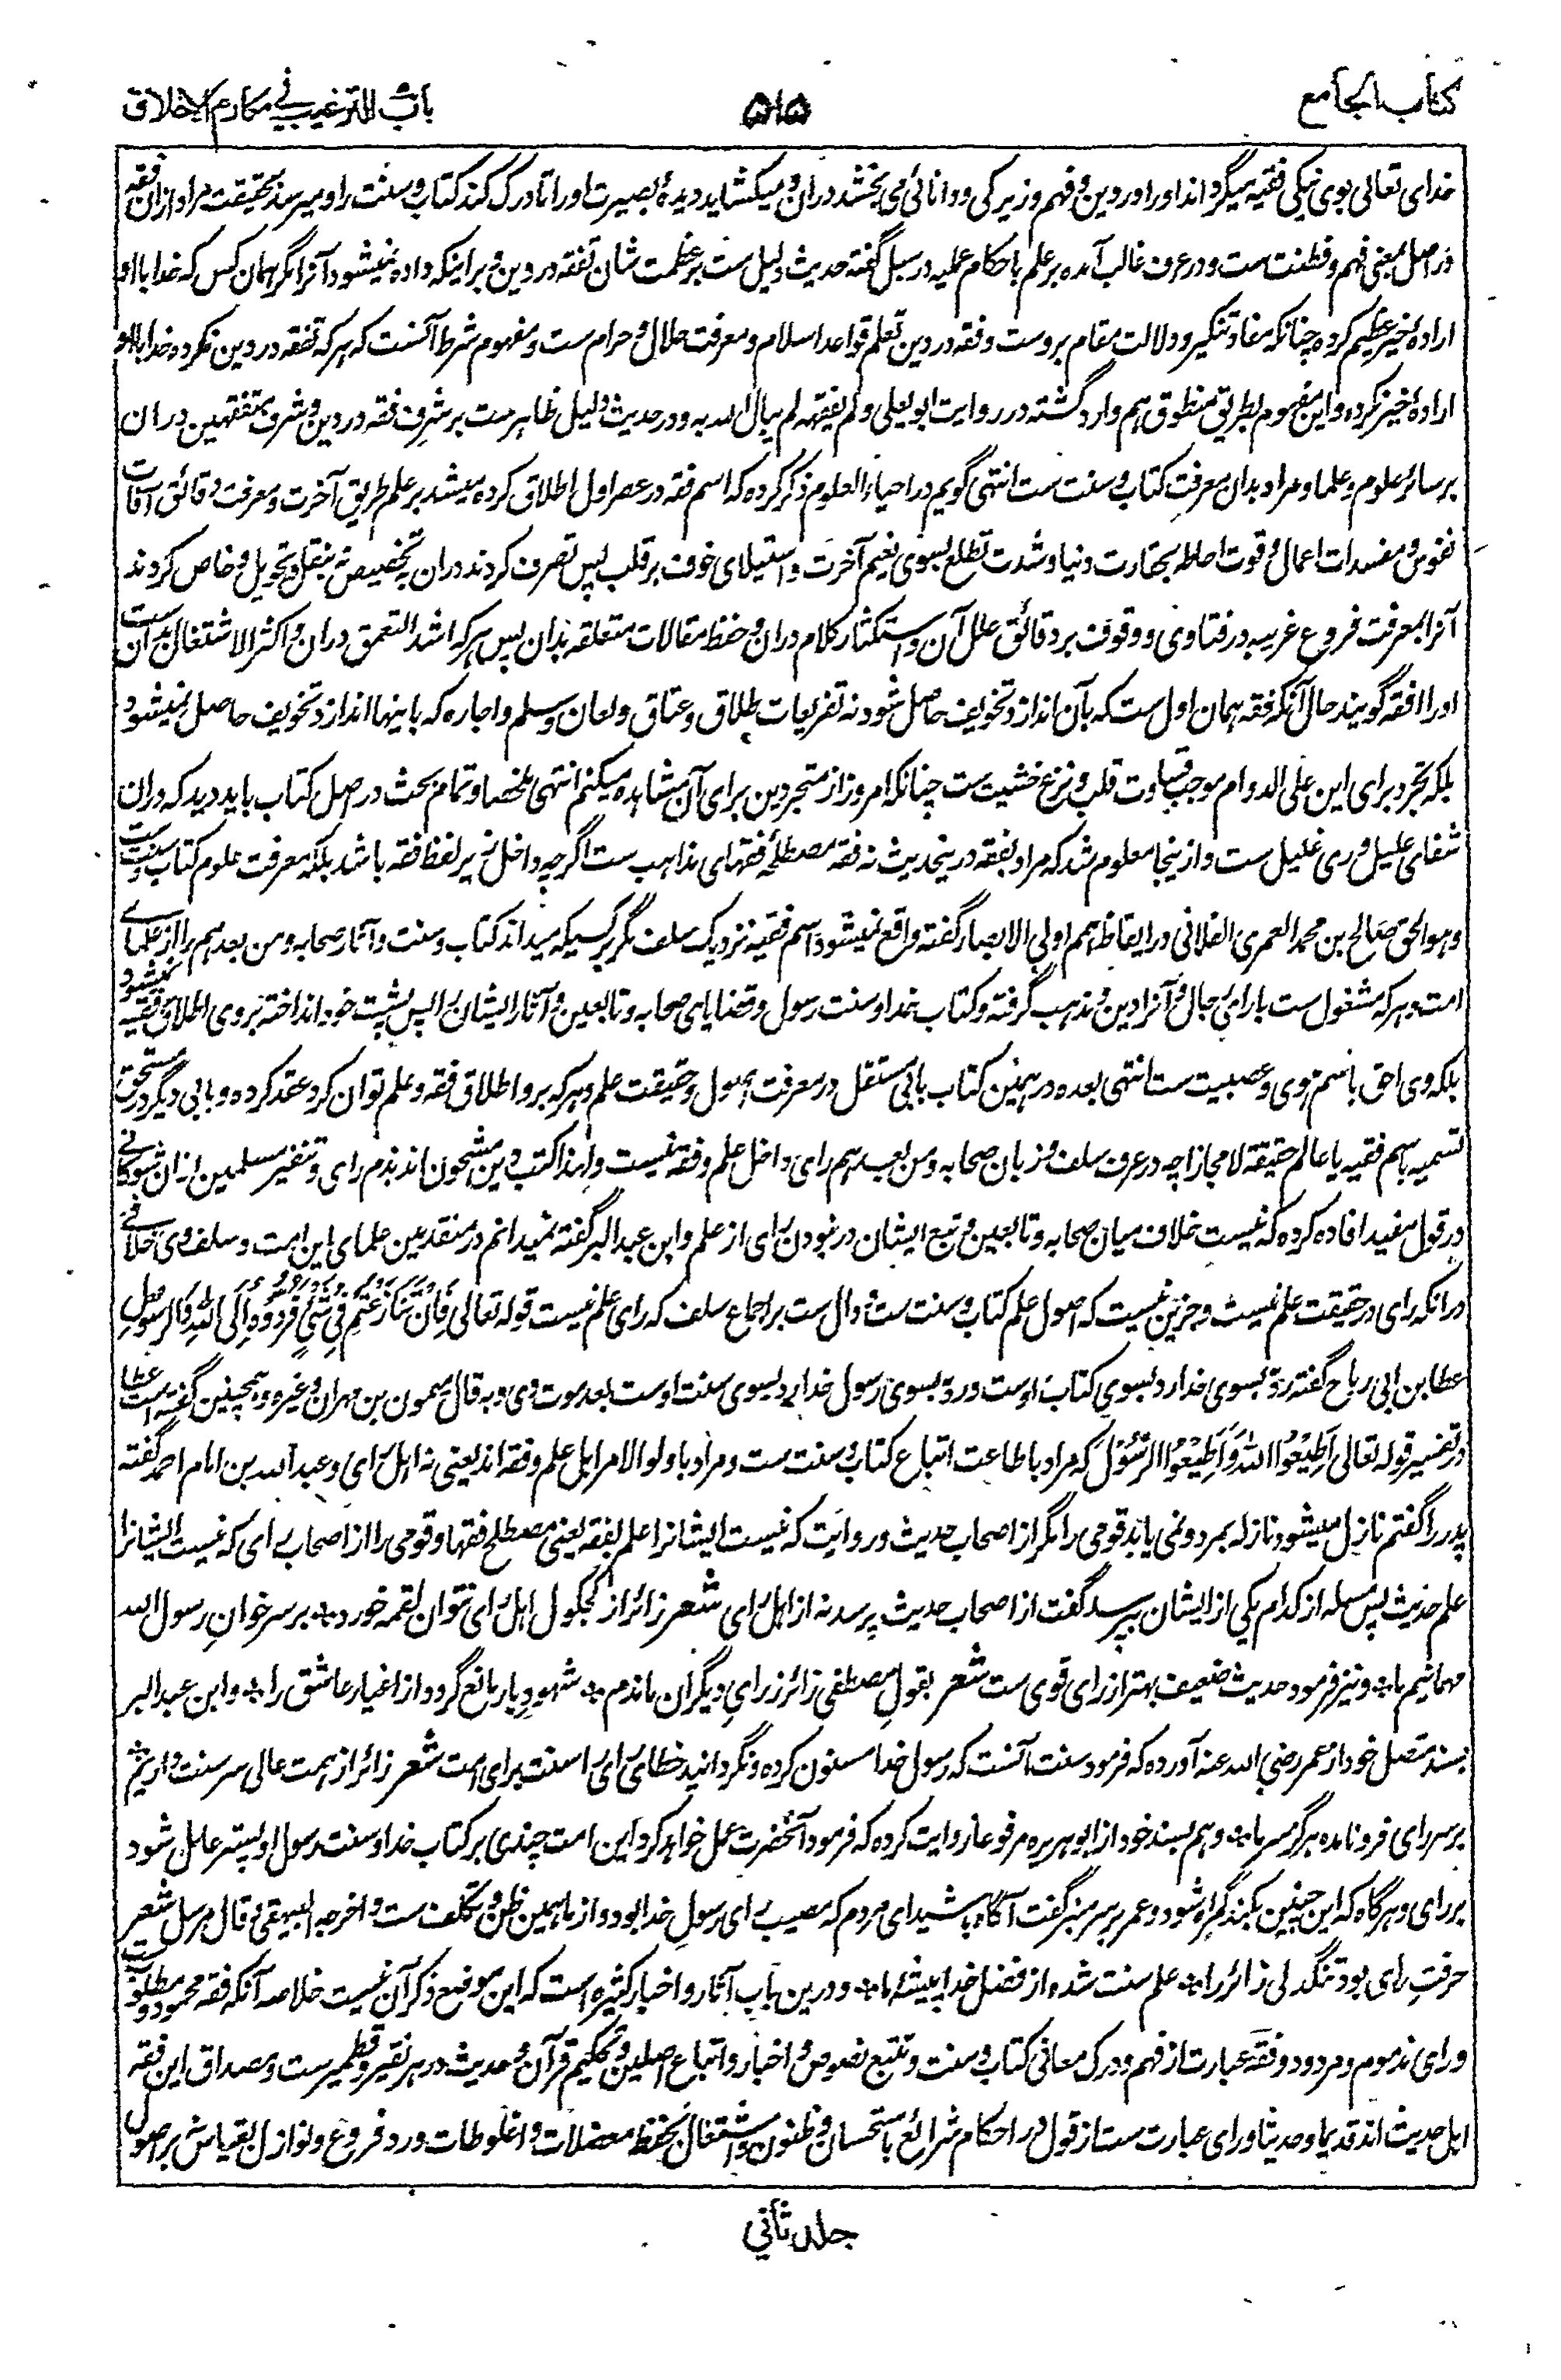 کتاب الجامع
۵۱۵
باب الترغیب فی مکارم الاخلاق
خدای تعالی بوی نیکی فقیه میگرداند او را در دین و فهم و زیرکی و دانائی می بخشد دران و میکشاید دیدهٔ بصیرت او را تا درک کند کتاب و سنت را و میرسد بحقیقت مراد ازان فقه
در اصل بمعنی فهم و فطنت ست و در عرف غالب آمده بر علم باحکام عملیه در سبل گفته حدیث دلیل ست بر عظمت شان تفقه در دین و بر اینکه داده نمیشود آنرا مگر همان کس که خدا با او
ارادهٔ خیر عظیم کرده چنانکه مفاد تنکیر و دلالت مقام بروست و فقه در دین تعلم قواعد اسلام و معرفت حلال و حرام ست و مفهوم شرط آنست که هر که تفقه در دین نکرده خدا با او
ارادهٔ خیر نکرده و این مفهوم بطریق منطوق هم وارد گشته در روایت ابو یعلی و لم یفقهه لم یبال الله به و در حدیث دلیل ظاهر ست بر شرف فقه در دین و شرف متفقهین دران
بر سائر علوم و علما و مراد بدان معرفت کتاب و سنت ست انتهی گویم در احیاء العلوم ذکر کرده که اسم فقه در عصر اول اطلاق کرده میشد بر علم طریق آخرت و معرفت دقائق آفات
نفوس و مفسدات اعمال و قوت احاطه بحقارت دنیا و شدت تطلع بسوی نعیم آخرت و استیلای خوف بر قلب پس تصرف کردند دران به تخصیص نه بنقل و تحویل و خاص کردند
آنرا بمعرفت فروع غریبه در فتاوی و وقوف بر دقائق علل آن و استکثار کلام دران و حفظ مقالات متعلقه بدان پس هر که اشد التعمق دران و اکثر الاشتغال بدان ست
او را افقه گویند حال آنکه فقه همان اول ست که بآن انذار و تخویف حاصل شود نه تفریعات طلاق و عتاق و لعان و سلم و اجاره که باینها انذار و تخویف حاصل نمیشود
بلکه تجرد برای این علی الدوام موجب قساوت قلب و نزع خشیت ست چنانکه امروز از متجردین برای آن مشاهده میکنم انتهی ملخصا و تمام بحث در اصل کتاب باید دید که دران
شفای علیل و ری غلیل ست و ازینجا معلوم شد که مراد بفقه درینحدیث نه فقه مصطلحهٔ فقهای مذاهب ست اگرچه داخل زیر لفظ فقه باشد بلکه معرفت علوم کتاب و سنت ست
و هو الحق صالح بن محمد العمری الفلانی در ایقاظ همم اولی الابصار گفته واقع نمیشود اسم فقیه نزدیک سلف مگر بر کسیکه میداند کتاب و سنت و آثار صحابه و من بعد هم را از علمای
امت و هر که مشغول ست بارای رجال و آنرا دین و مذهب گرفته و کتاب خدا و سنت رسول و قضایای صحابه و تابعین و آثار ایشان را پس پشت خود انداخته بر وی اطلاق فقیه نمیشود
بلکه وی احق باسم هوی و عصبیت ست انتهی بعده در همین کتاب بابی مستقل در معرفت اصول و حقیقت علم و هر که برو اطلاق فقه و علم توان کرد عقد کرده و بابی دیگر در مستحق
تسمیه باسم فقیه یا عالم حقیقة لا مجازا چه در عرف سلف و زبان صحابه و من بعد هم رای داخل علم و فقه نیست و لهذا کتب دین مشحون اند بذم رای و تنفیر مسلمین ازان شوکانی
در قول مفید افاده کرده که نیست خلاف میان صحابه و تابعین و تبع ایشان در نبودن رای از علم و ابن عبد البر گفته نمیدانم در متقدمین علمای این امت و سلف وی خلافی
درانکه رای در حقیقت علم نیست و جزین نیست که اصول علم کتاب و سنت ست و دال ست بر اجماع سلف که رای علم نیست قوله تعالی فَاِنْ تَنَازَعْتُمْ فِی شَیْءٍ فَرُدُّوْهُ اِلَی اللهِ وَالرَّسُوْلِ
عطا بن ابی رباح گفته رد بسوی خدا رد بسوی کتاب اوست و رد بسوی رسول خدا رد بسوی سنت اوست بعد موت وی و به قال میمون بن مهران و غیره و همچنین گفته است عطا
در تفسیر قوله تعالی اَطِیْعُوا اللهَ وَ اَطِیْعُوا الرَّسُوْلَ که مراد باطاعت اتباع کتاب و سنت ست و مراد باولو الامر اهل علم و فقه اند یعنی نه اهل رای و عبد الله بن امام احمد گفته
پدر را گفتم نازل میشود نازله بمرد و نمی یابد قومی را مگر از اصحاب حدیث و روایت که نیست ایشانرا علم بفقه یعنی مصطلح فقها و قومی را از اصحاب رای که نیست ایشانرا
علم حدیث پس مسئله از کدام یکی از ایشان بپرسد گفت از اصحاب حدیث پرسد نه از اهل رای شعر زائر از کجکول اهل رای نتوان لقمه خورد ٭ بر سر خوان رسول الله
مهمانیم ما ٭ و نیز فرمود حدیث ضعیف بهتر از رای قوی ست شعر بقول مصطفی زائر ز رای دیگران ماندم ٭ شهود یار مانع گردد از اغیار عاشق را ٭ و ابن عبد البر
بسند متصل خود از عمر رضی الله عنه آورده که فرمود سنت آنست که رسول خدا مسنون کرده و نگردانید خطای رای را سنت برای امت شعر زائر از همت عالی سر سنت داریم ٭
بر سر رای فرو نامده هرگز سر ما ٭ و هم بسند خود از ابو هریره مرفوعا روایت کرده که فرمود آنحضرت عمل خواهد کرد این امت چندی بر کتاب خدا و سنت رسول او پستر عامل شود
بر رای و هرگاه که این چنین بکند گمراه شود و عمر بر سر منبر گفت آگاه باشید ای مردم که مصیب رای رسول خدا بود و از ما همین ظن و تکلف ست و اخرجه البیهقی و قال مرسل شعر
حرفت رای بود تنگدلی زائر را ٭ علم سنت شده از فضل خدا پیشهٔ ما ٭ و درین باب آثار و اخبار کثیره است که این موضع ذکر آن نیست خلاصه آنکه فقه محمود و مطلوب ست
و رای مذموم و مردود و فقه عبارت از فهم و درک معانی کتاب و سنت و تتبع نصوص و اخبار و اتباع اصلین و تحکیم قرآن و حدیث در هر نقیر و قطمیر ست و مصداق این فقه
اهل حدیث اند قدیما و حدیثا و رای عبارت ست از قول در احکام شرائع باستحسان و ظنون و اشتغال بحفظ معضلات و اغلوطات و رد فروع و نوازل بقیاس بر اصول
جلد ثانی